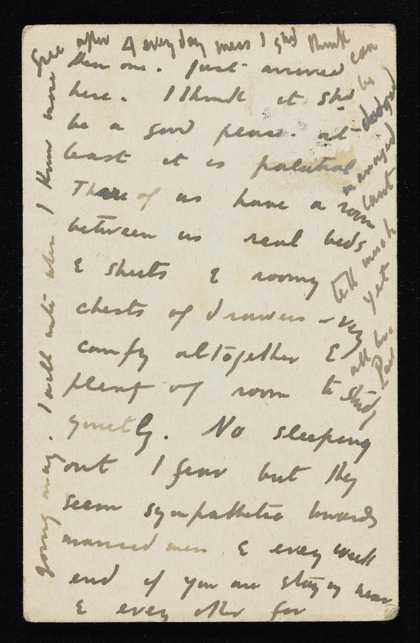 then one. Just arrived
here. I think it shd
be a good place. at
least it is palatial
Three of us have a room
between us real beds
& sheets & roomy
chests of drawers - very
comfy altogether &
plenty of room to study
quietly. No sleeping
out I fear but they
seem sympathetic towards
married men & every week
end if you are staying near
& every other for
going away. I will write when I know more
Free after 4 every day mess I shd think can
be dodged
managed
cant
tell much
yet
all love